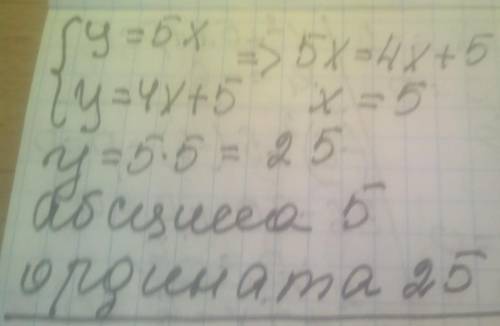 {y=5x => 5x=4x+5
{y=4x+5 x=5
y=5·5=25
абсцисса 5
ордината 25